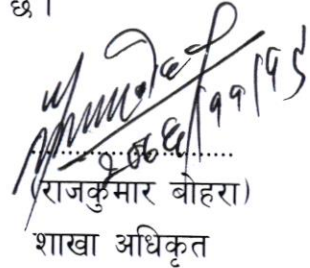 छ ।
२०७६/११/१५
....................
(राजकुमार बोहरा)
शाखा अधिकृत